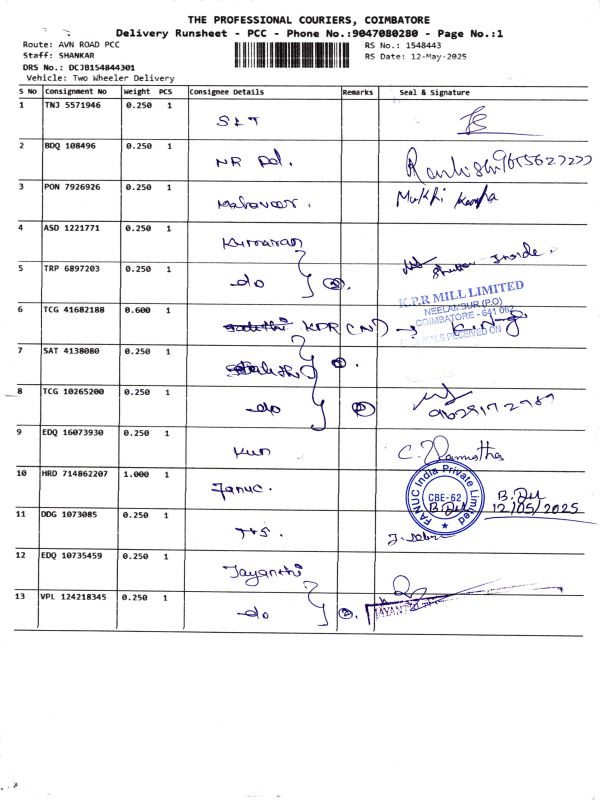 THE PROFESSIONAL COURIERS, COIMBATORE
Delivery Runsheet - PCC - Phone No.:9047080280 - Page No.:1
Route: AVN ROAD PCC
RS No.: 1548443
Staff: SHANKAR
RS Date: 12-May-2025
DRS No.: DCJB154844301
Vehicle: Two Wheeler Delivery
S No Consignment No Weight PCS Consignee Details Remarks Seal & Signature
1 TNJ 5571946 0.250 1
2 BDQ 108496 0.250 1 NR Pd.
3 PON 7926926 0.250 1 Mahaveer.
4 ASD 1221771 0.250 1 Kumaran
Shutter Inside.
5 TRP 6897203 0.250 1 -do
K.P.R MILL LIMITED
NEELAMBUR (P.O)
COIMBATORE - 641 062
MATERIALS RECEIVED ON
6 TCG 41682188 0.600 1 KPR (N) →
7 SAT 4138080 0.250 1
8 TCG 10265200 0.250 1 -do
9 EDQ 16073930 0.250 1
10 HRD 714862207 1.000 1 Fanuc.
FANUC India Private Limited
CBE-62
12/05/2025
11 DDG 1073085 0.250 1
12 EDQ 10735459 0.250 1 Jayanthi
13 VPL 124218345 0.250 1 -do